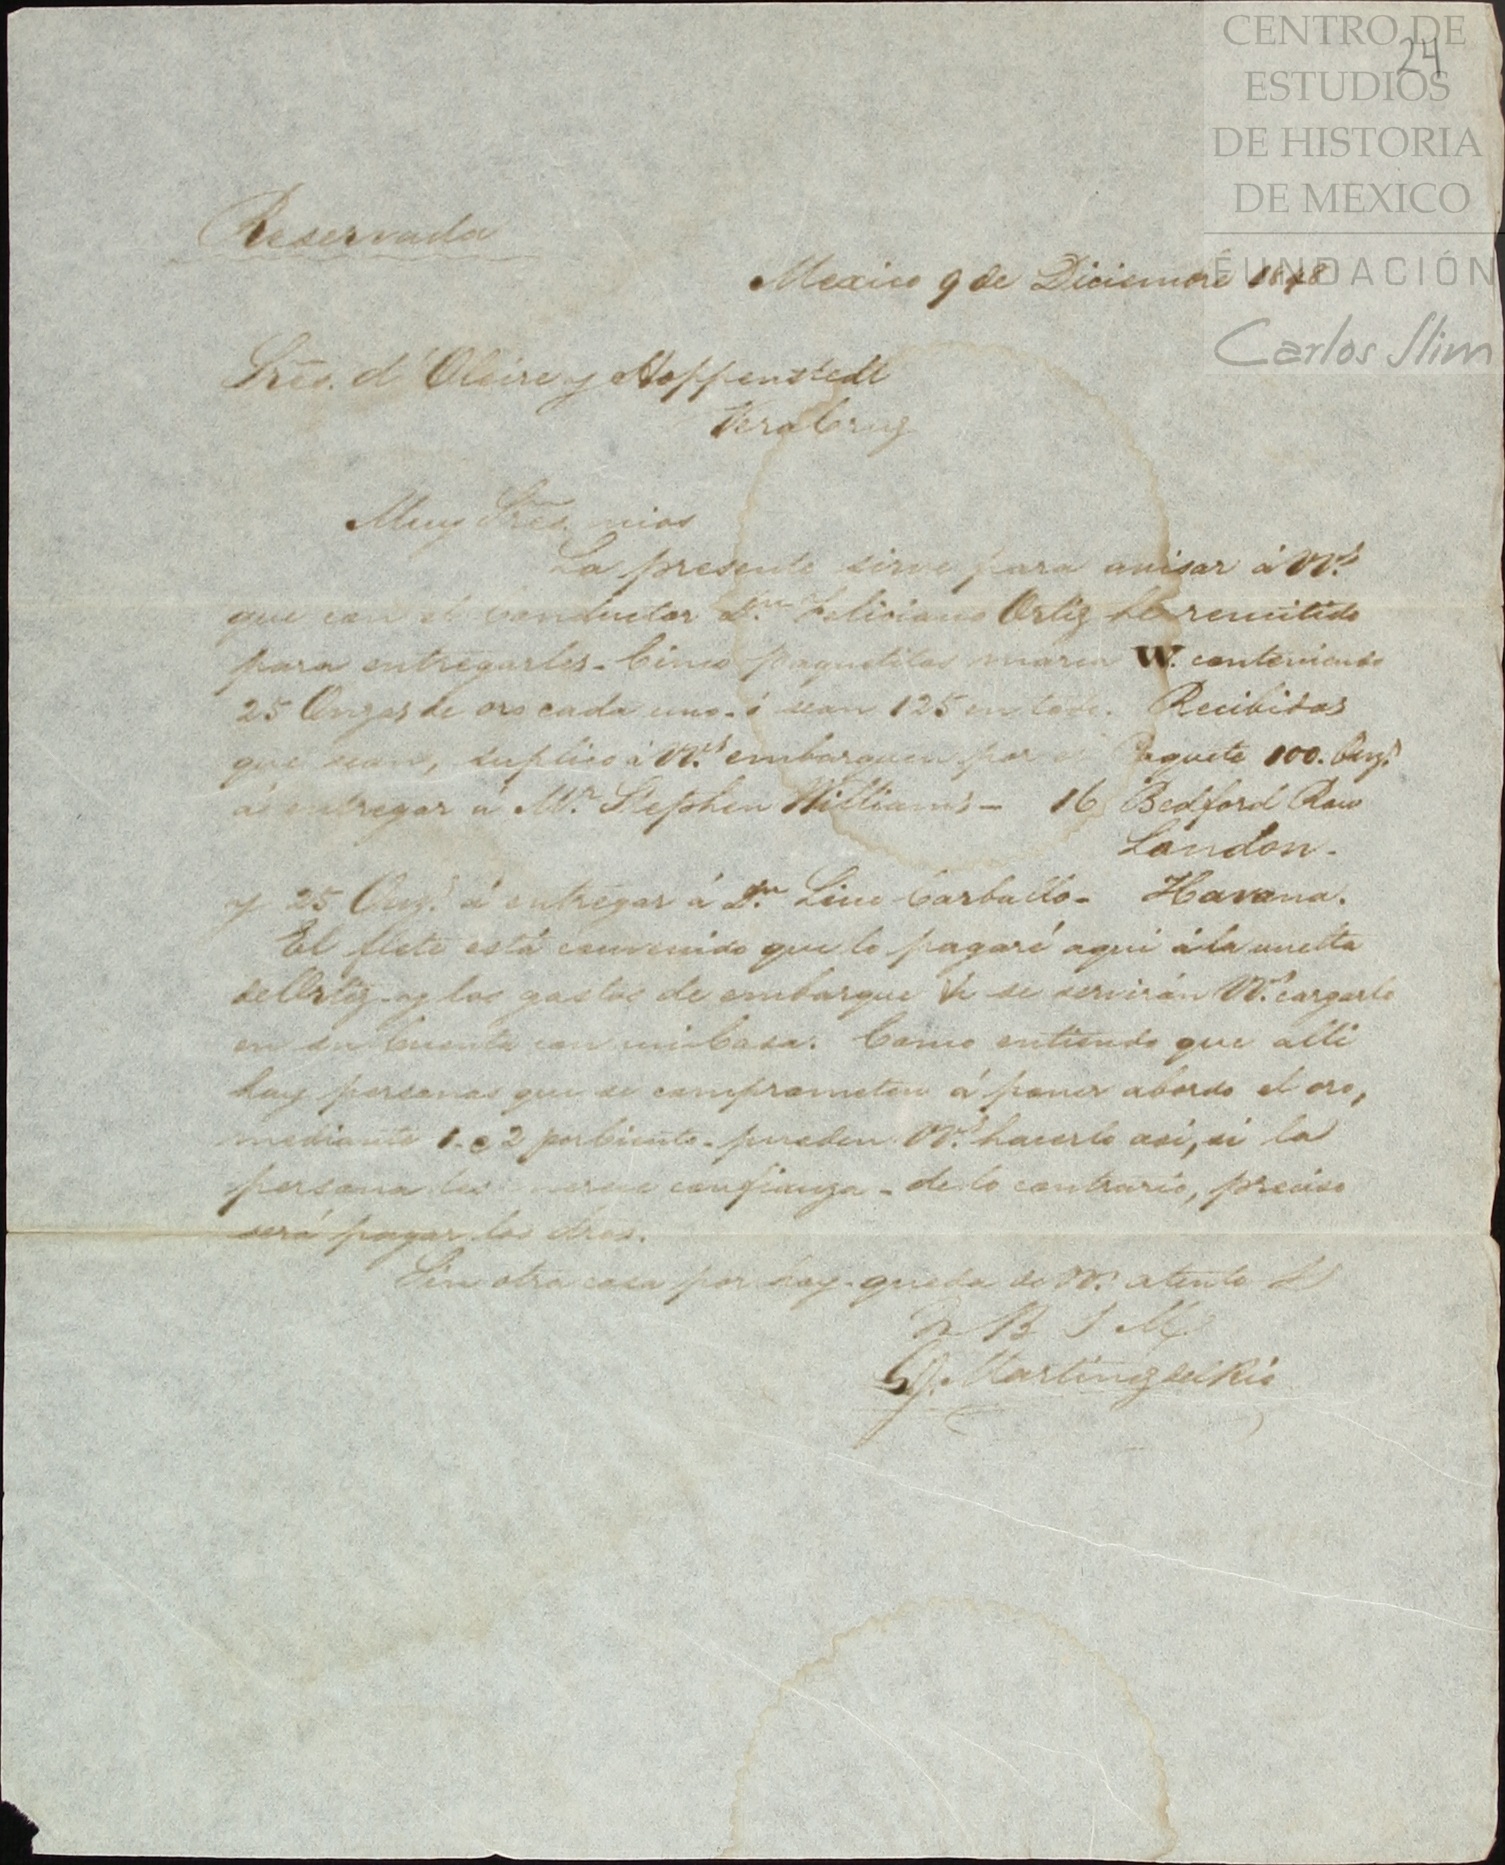 24
CENTRO DE
ESTUDIOS
DE HISTORIA
DE MEXICO
FUNDACIÓN
Carlos Slim
Reservada
Mexico 9 de Diciembre 1848
Sres. d' Oleire y Hoppenstedt
Vera Cruz
Muy Sres. mios
La presente sirve para avisar á VV.s
que con el conductor Dn. Feliciano Ortiz he remitido
para entregarles - Cinco paquetitos marca W. conteniendo
25 Onzas de oro cada uno - ó sean 125 en todo. Recibidas
que sean, suplico á VV.s embarquen por el Paquete 100. Onz.s
á entregar á Mr. Stephen Williams - 16 Bedford Row
London -
y 25 Onz.s á entregar á Dn. Lino Carballo - Havana.
El flete está convenido que lo pagaré aqui á la vuelta
de Ortiz - y los gastos de embarque se servirán VV.s cargarlo
en su Cuenta con mi Casa. Como entiendo que alli
hay personas que se comprometen á poner abordo el oro,
mediante 1 - 2 por Ciento - pueden VV.s hacerlo asi, si la
persona les merece confianza - de lo contrario, preciso
será pagar los dros.
Sin otra cosa por hoy - queda de VV.s atento S
Q B S M
Martinez del Rio